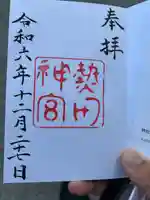 奉拝
熱田
神宮
令和六年十二月二七日